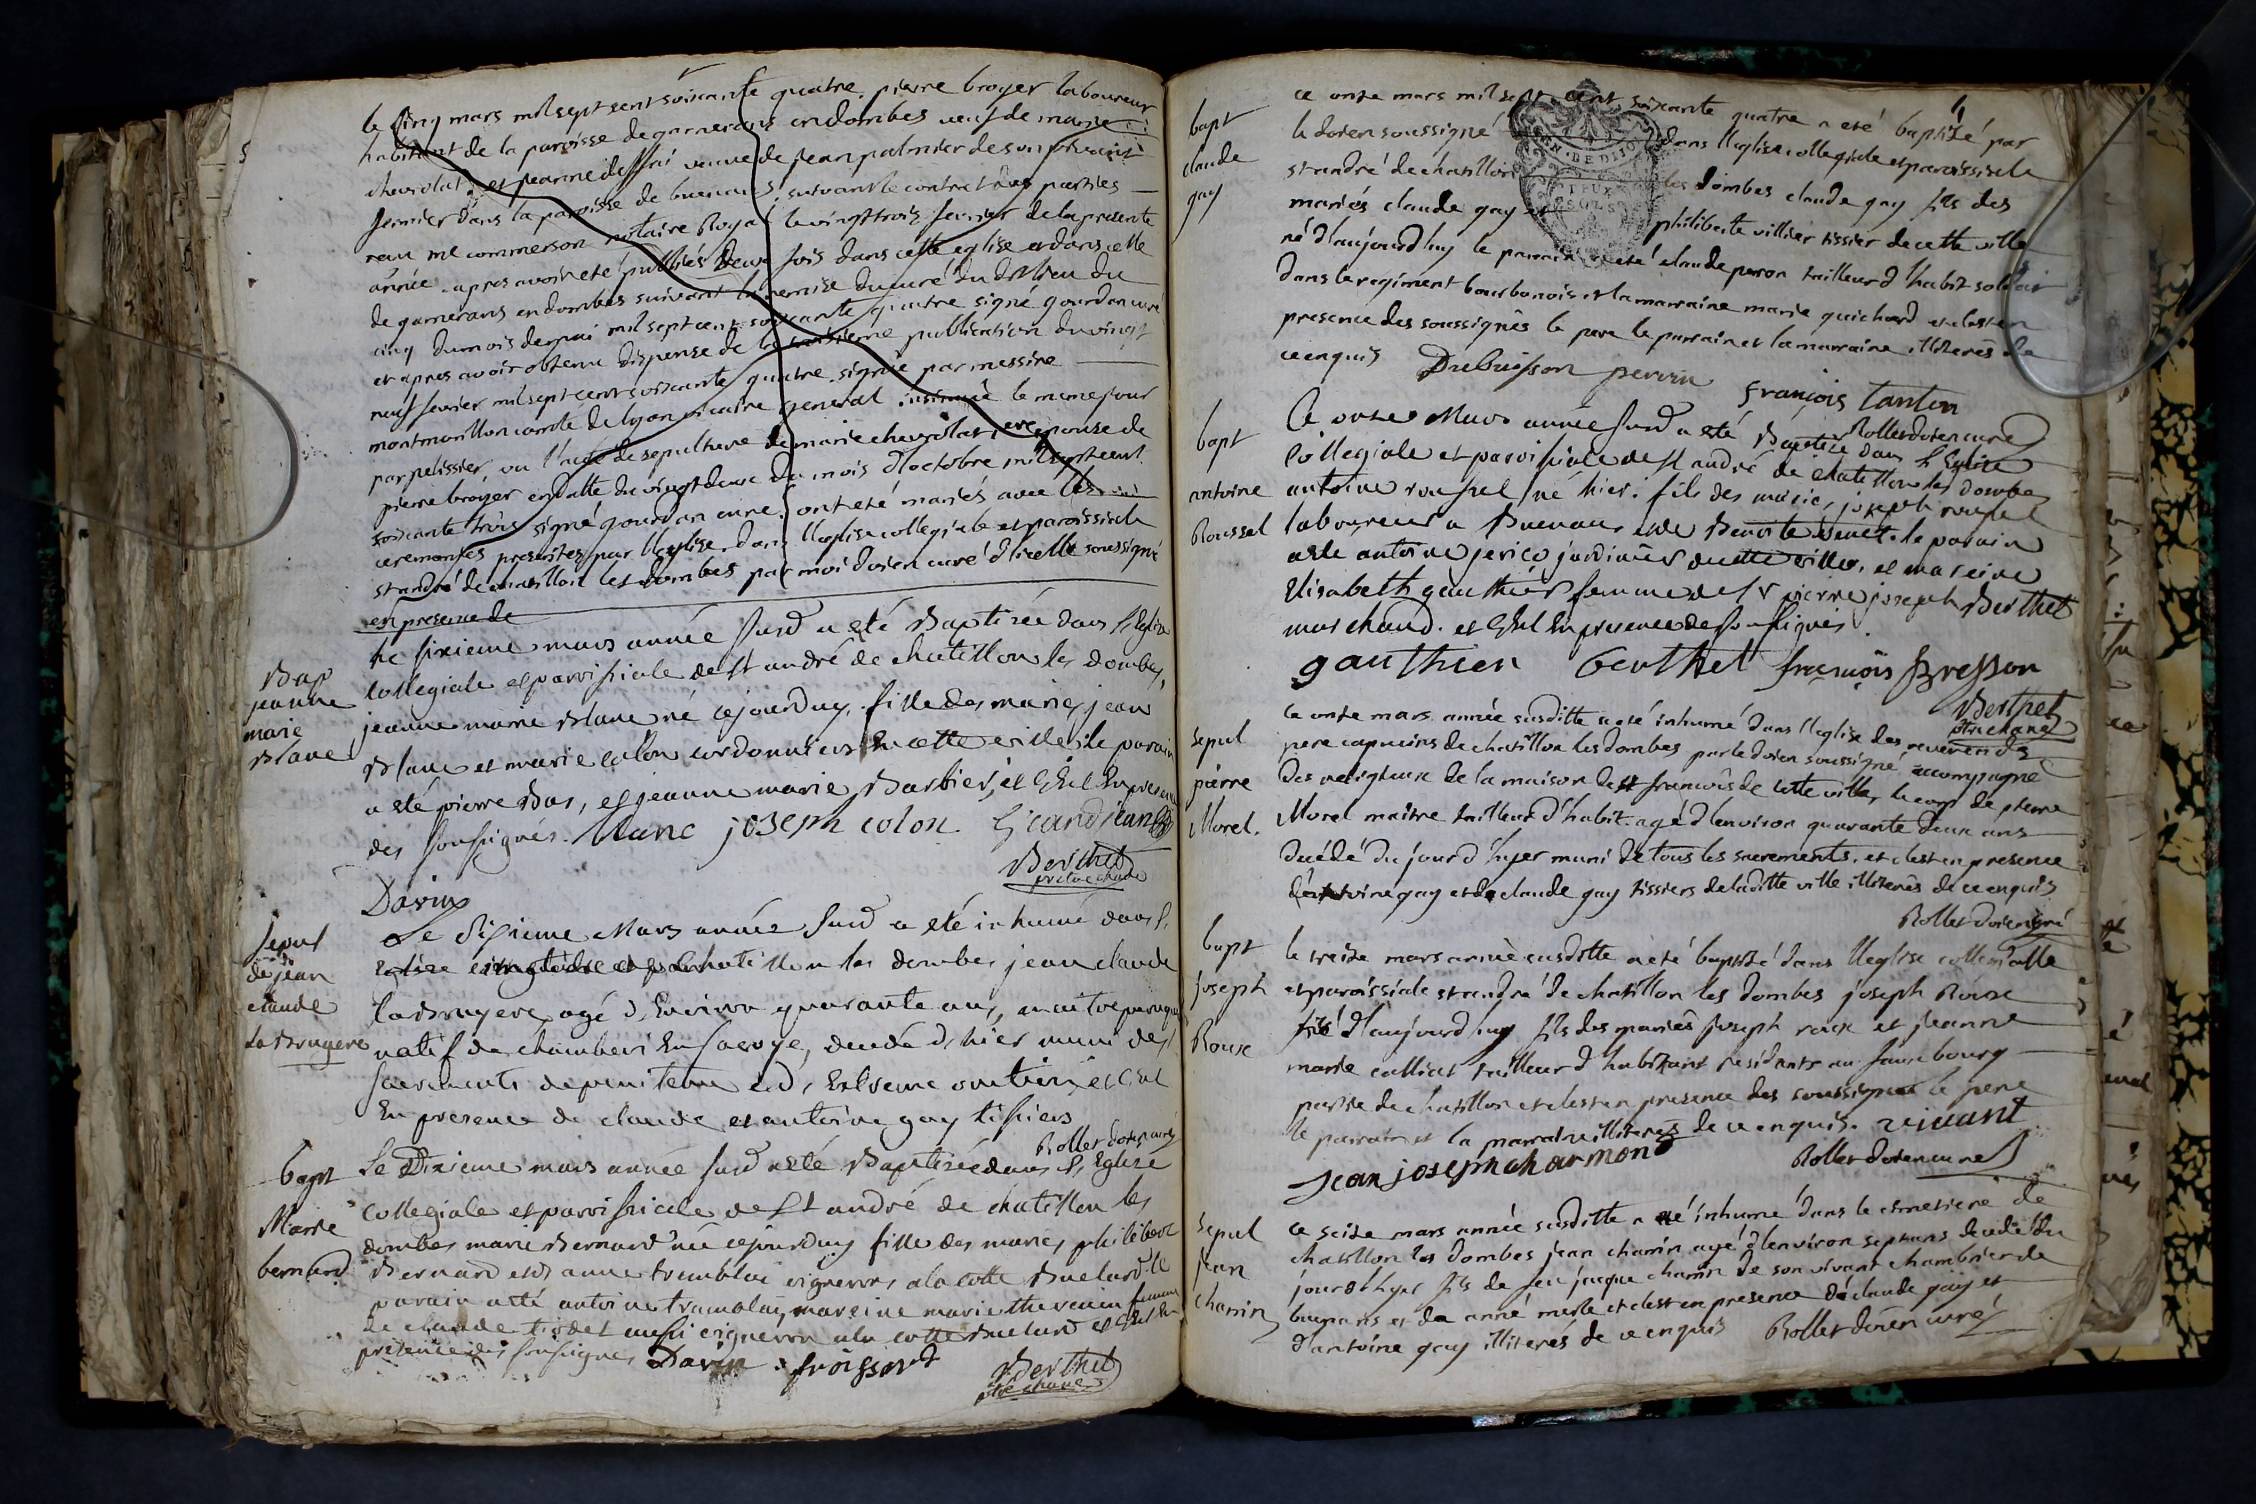 le cinq mars mil sept cent soixante quatre pierre broyer laboureur
habitant de la paroisse de garnerans en dombes veuf de marie
chevrolat et jeanne veuve de jean palmier de son vivant
fermier dans la paroisse de suivant le contract des parties
reçu me commerson notaire Royal le vingt trois fevrier de la presente
année apres avoir eté publiés deux fois dans cette eglise et dans celle
de garnerans en dombes suivant la remise du curé du dit lieu du
cinq du mois mil sept cent soixante quatre signé gourdan curé
et apres avoir obtenu dispense de la troisieme publication du vingt
neuf fevrier mil sept cent soixante quatre signée par messire
montmorillon comte de lyon vicaire general insinué le meme jour
par pelissier, vu l'acte de sepulture de marie chevrolat epouse de
pierre broyer en datte du vingt deux du mois d'octobre mil sept cent
soixante trois signé gourdan curé ont eté mariés avec les
ceremonies prescrites par l'eglise dans l'eglise collegiale et paroissiale
st andré de chatillon les dombes par moi doien curé d'icelle soussigné
en presence de
Bap
jeanne
marie
Blanc
Le sixieme mars année susd a eté Baptisée dans l'Eglise
collegiale et paroissiale de st andré de chatillon les dombes,
jeanne marie Blanc né cejourduy, fille des maries jean
Blanc et marie colon cordonniers En cette ville le parain
a eté pierre Bas, et jeanne marie Barbier, et C'est En presence
des soussignés. blanc joseph colon
Berthet
pretre chane
Davin
sepul
de jean
claude
La Bruyere
Le Sixieme Mars année susd a eté inhumé dans l'
Eglise chatillon les dombes jean claude
la Bruyere, agé d'Environ quarante ans, maitre
natif de chamberi En savoye, decedé d'hier muni des
sacrements de penitence et d'Extreme onction, et C'est
En presence de claude et antoine gay tissiers
Rollet doien curé
bapt
Marie
bernard
Le Dixieme mars année susd a eté Baptisée dans l'Eglise
collegiale et paroissiale de st andré de chatillon les
dombes marie Bernard née cejourduy fille des maries philibert
Bernard et d'anne tremblai vignerons a la cotte le
parain a eté antoine tramblay, mareine marie femme
de claude aussi vigneron a la cotte et C'est En
presence des soussignes Davin froissard
Berthet
ptre chane
bapt
claude
gay
ce onze mars mil sept cent soixante quatre a eté baptizé par
le doien soussigné dans l'eglise collegiale et paroissiale
st andré de chatillon les dombes claude gay fils des
mariés claude gay et philiberte villier tissier de cette ville
né d'aujourd'huy le parain a eté claude peron tailleur d'habit soldat
dans le regiment bourbonois et la marraine marie guichard et c'est en
presence des soussignés le pere le parrain et la marraine illiterés de
ce enquis Dubuisson perrin
françois tanton
Rollet doien curé
bapt
antoine
Roussel
Ce onze Mars année susd a eté Baptisé dans l'Eglise
collegiale et paroissiale de st andré de chatillon les dombes
antoine roussel né hier fils des maries, joseph roussel
laboureur a Buenans et de Benoite le parain
a eté antoine jerico jardinier de cette ville, et mareine
Elisabeth gauthier femme de sr pierre joseph Berthet
marchand et C'est En presence des soussignes
gauthier berthet françois Bresson
Berthet
ptre chane
sepul
pierre
Morel.
ce onze mars année susditte a eté inhumé dans l'eglise des reverends
pere capucins de chatillon les dombes par le doien soussigné accompagné
des religieux de la maison de st françois de cette ville, le corp de pierre
Morel maitre tailleur d'habit agé d'environ quarante deux ans
decedé du jour d'hyer muni de tous les sacrements. et c'est en presence
d'antoine gay et de claude gay tissiers de laditte ville illiterés de ce enquis
Rollet doien curé
bapt
joseph
Roux
le treize mars année susditte a eté baptisé dans l'eglise collegialle
et paroissiale st andré de chatillon les dombes joseph Roux
né d'aujourd'huy fils des mariés joseph roux et jeanne
marie calliat tailleur d'habit residants au fauxbourg
de chatillon et c'est en presence des soussignes le pere
le parrain et la marraine illiteres de ce enquis. vivant
jean joseph charmond Rollet doien curé
sepul
jean
chanin
ce seize mars année susditte a eté inhumé dans le cimetiere de
chatillon les dombes jean chanin agé d'environ sept ans decedé du
jour d'hyer fils de feu jacque chanin de son vivant chambrier de
et de anne merle et c'est en presence de claude gay et
d'antoine gay illiterés de ce enquis Rollet doien curé